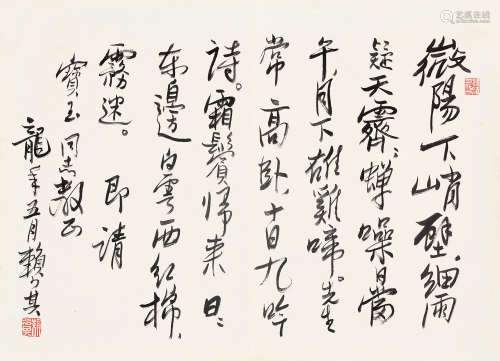 微陽下峭壁、細雨
疑天霽；蟬噪日當
午、月下雄雞啼。先生
常高卧、十日九吟
詩。霜鬢歸來日：
东邊白雲西紅棉、
霧迷。即請
寶玉同志教正
龍年五月賴少其